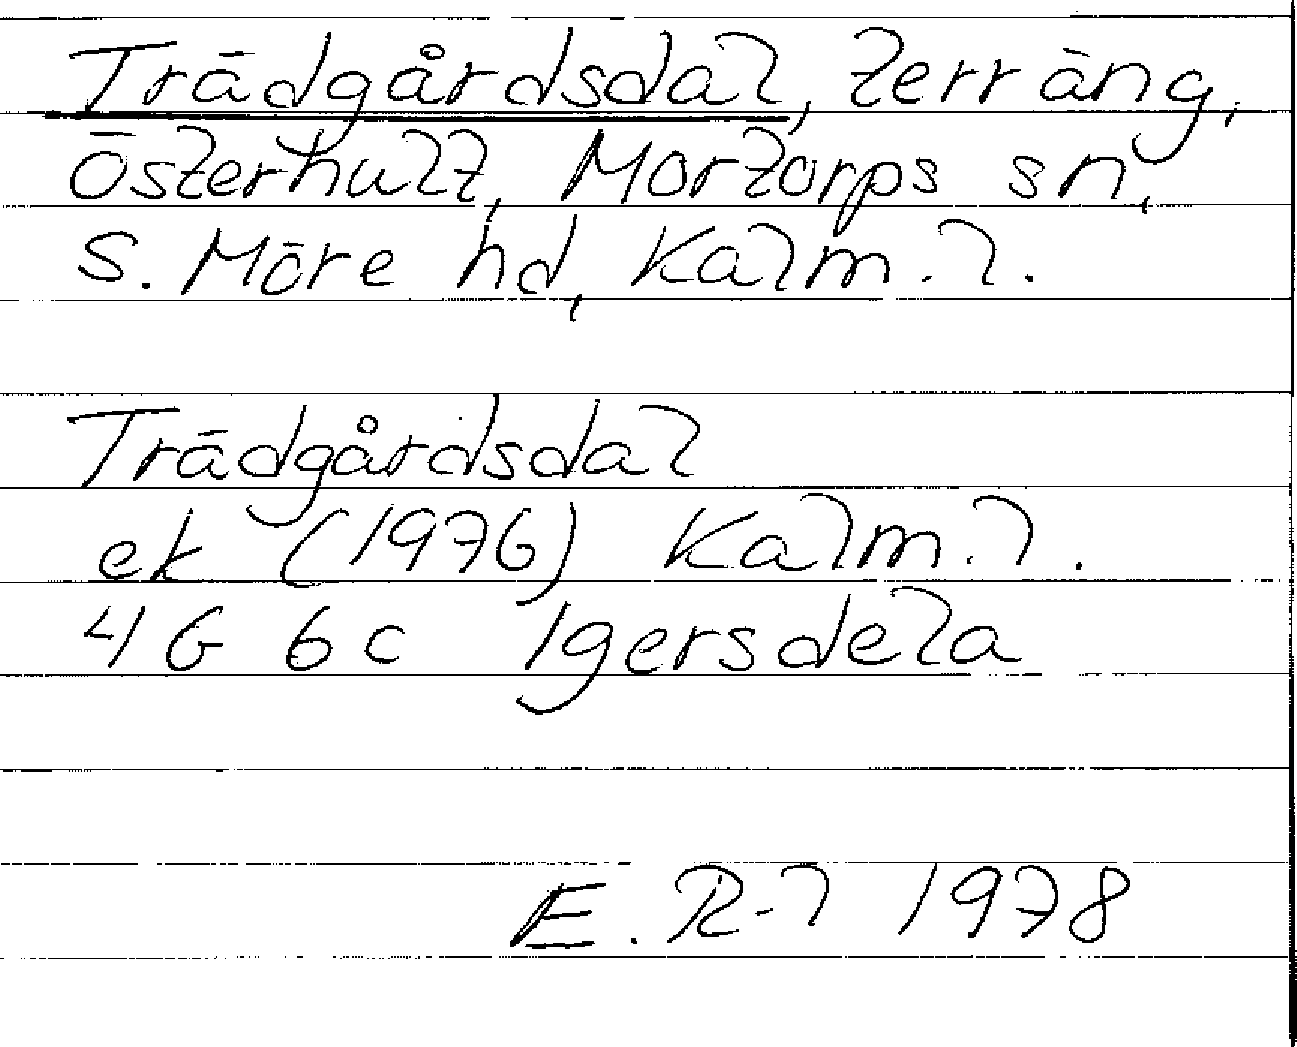 Trädgårdsdal, terräng,
Österhult, Mortorps sn,
S. Möre hd, Kalm. l.
Trädgårdsdal
ek (1976) Kalm. l.
4G 6c Igersdela
E. R-l 1978